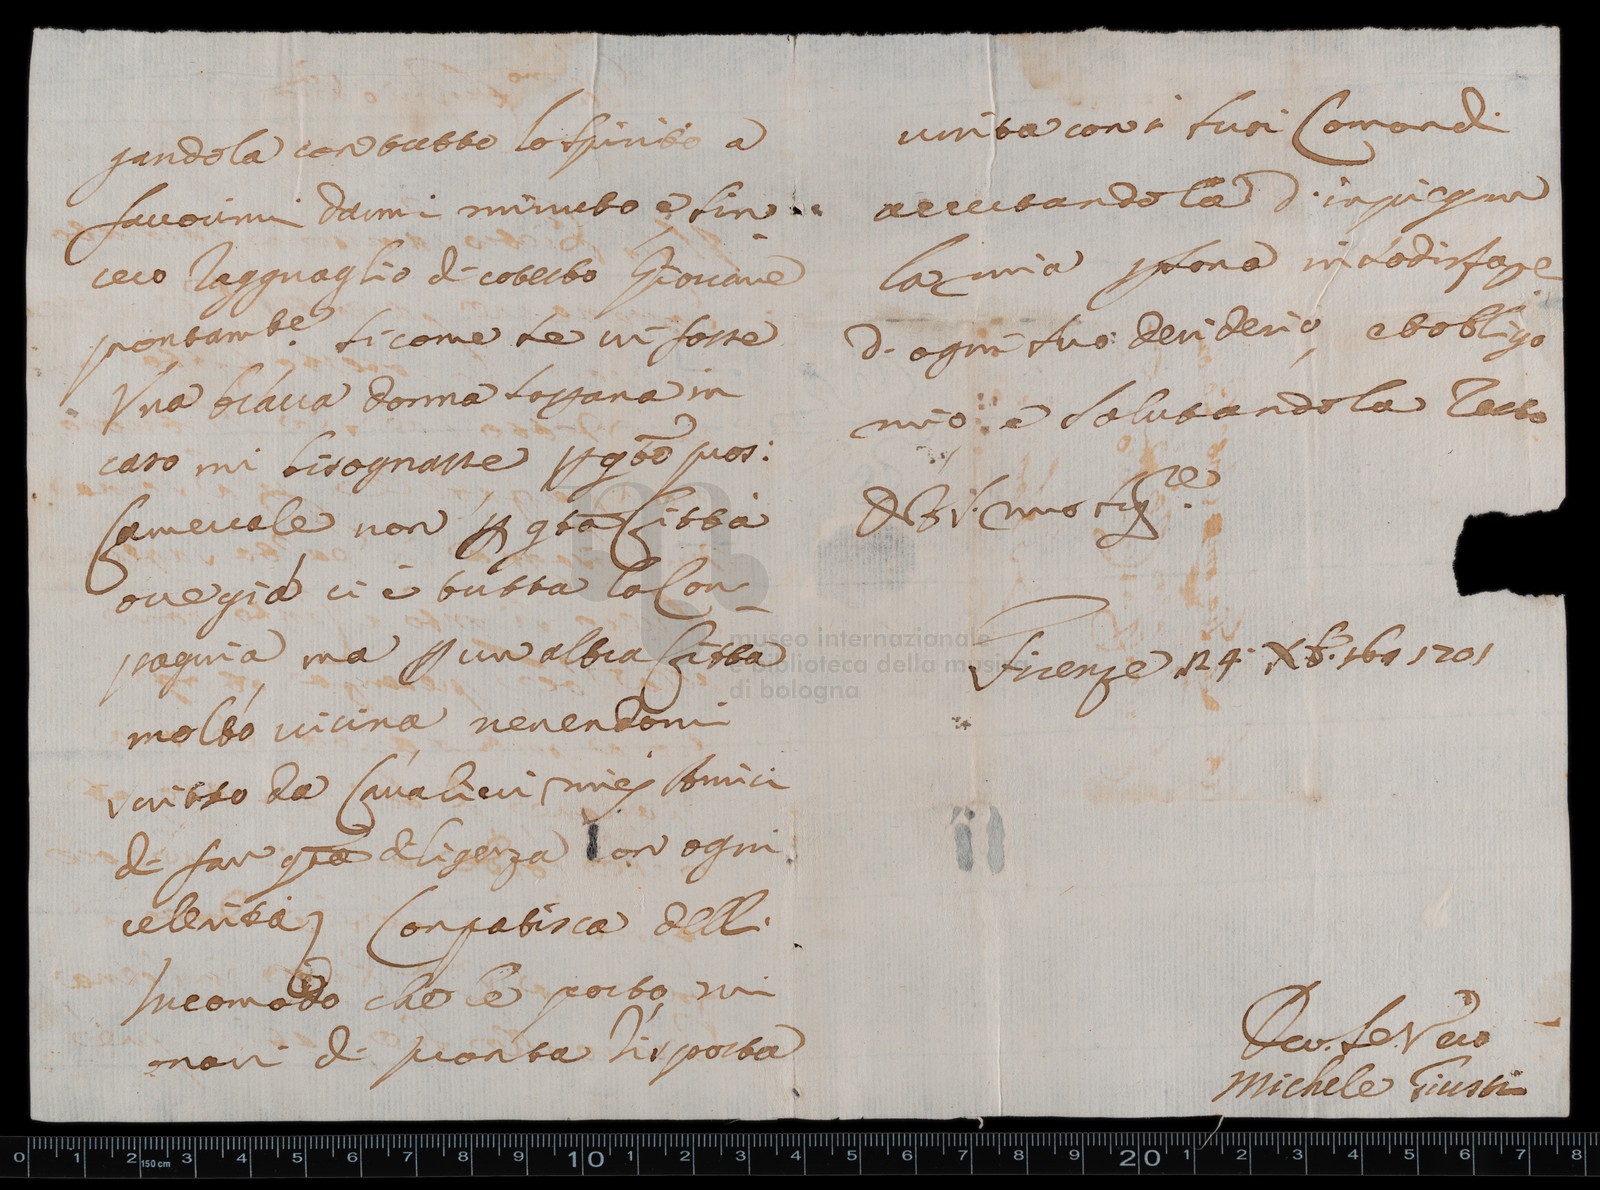 gandola con tutto lo spirito a
fauorirmi darmi minuto e sin
cero Ragguaglio di cotesto Giouane
prontamte. si come se ui fosse
Vna braua donna soprana in
caso mi bisognasse p qto pros:
Carneuale non p qta Città
oue già ui è tutta la Con-
pagnia ma p un altra Città
molto uicina uenendomi
scritto da Caualieri miei Amici
di far qta diligenza con ogni
celerità, Conpatisca dell
Incomodo che le porto, mi
onori di pronta Risposta
unita con i suoi Comandi
accertandola d'inpiegare
la mia psona in sodisfare
d- ogni suo desiderio, et obligo
mio e salutandola Resto
Di V.S. mio Sigre.
Firenze 24. Xbre. 1701
Deu. Se. Vero
Michele Giusti
museo internazionale
e biblioteca della musica
di bologna
0 1 2 3 4 5 6 7 8 9 10 1 2 3 4 5 6 7 8 9 20 1 2 3 4 5 6 7 8
150 cm